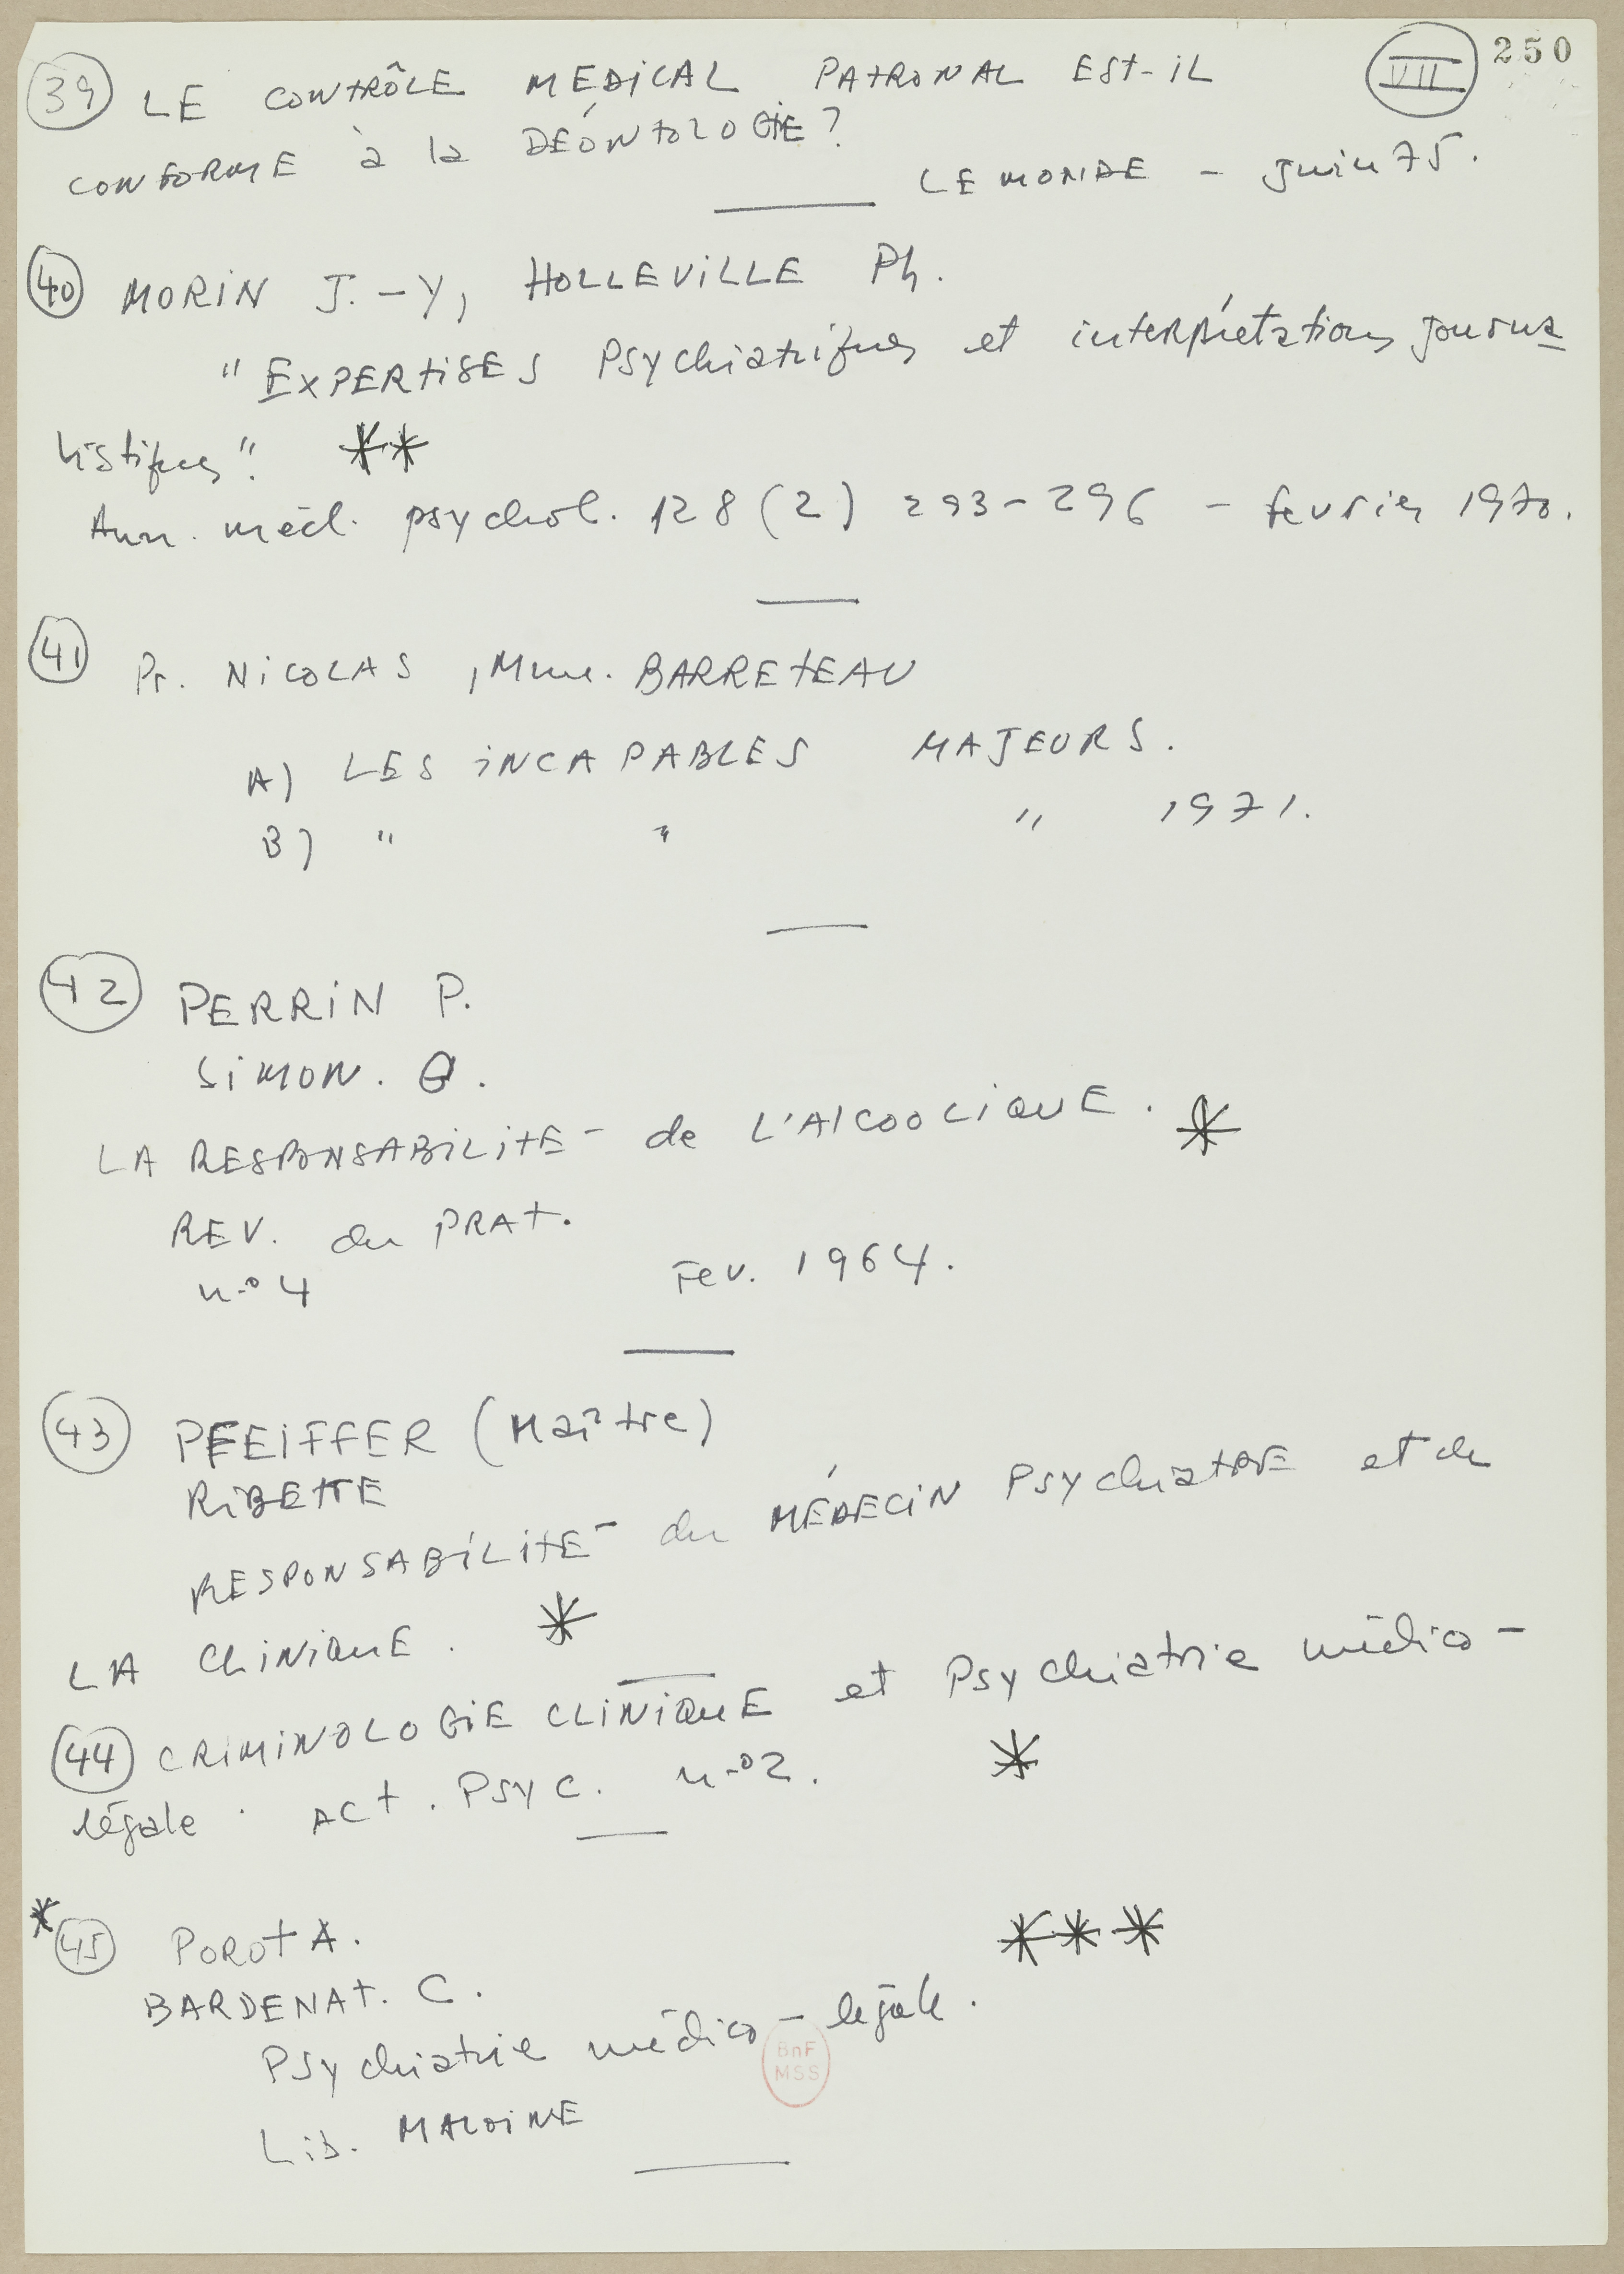 VII 250
39 LE CONTRÔLE MEDICAL PATRONAL EST-IL
CONFORME à la DÉONTOLOGIE?
LE MONDE - Juin 75.
40 MORIN J.-Y, HOLLEVILLE Ph.
"EXPERTISES Psychiatriques et interprétations journa
listiques". **
Ann. méd. psychol. 128 (2) 293-296 - fevrier 1970.
41 Pr. NICOLAS, Mme. BARRETEAU
A) LES INCAPABLES MAJEURS.
B) " " " 1971.
42 PERRIN P.
SIMON. G.
LA RESPONSABILITÉ de L'AlCOOLIQUE. *
REV. du PRAT.
n.º 4 Fev. 1964.
43 PFEIFFER (Maître)
RIBETTE
RESPONSABILITÉ du MÉDECIN PSYchiatRE et de
LA CliNIQUE. *
44 CRIMINOLOGIE CLINIQUE et Psychiatrie médico-
légale. ACT. PSYC. n.º 2. *
* 45 POROT A. ***
BARDENAT. C.
Psychiatrie médico-légale.
Lib. MALOINE
BnF
MSS